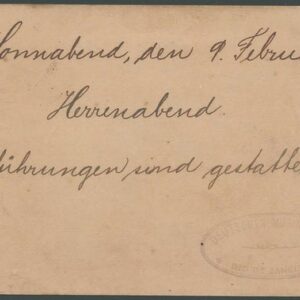 Sonnabend, den 9. Febru
Herrenabend.
führungen sind gestatte